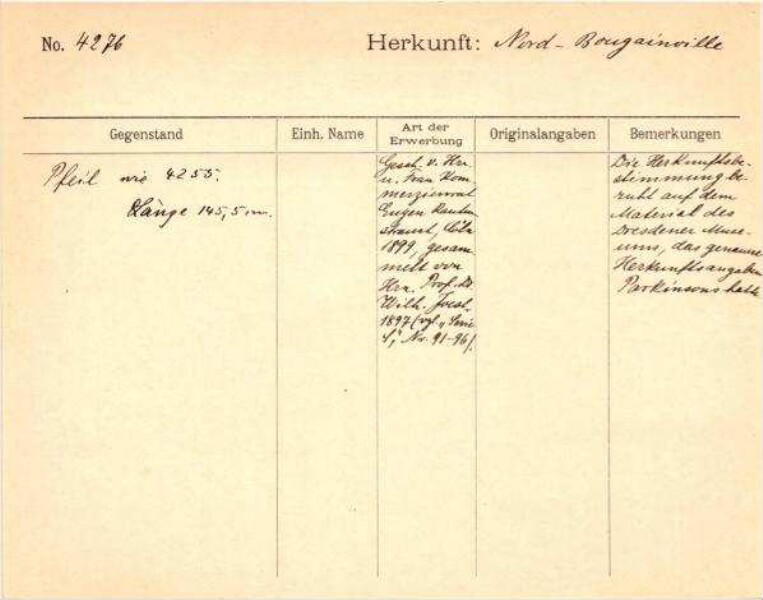 No. 4276
Herkunft: Nord-Bougainville
Gegenstand
Einh. Name
Art der
Erwerbung
Originalangaben
Bemerkungen
Pfeil wie 4255.
Länge 145,5 cm.
Gesch. v. Hrn
u. Frau Kom-
merzienrat
Eugen Rauten-
strauch, Cöln
1899, gesam-
melt von
Hrn. Prof. Dr.
Wilh. Joest,
1897 (vgl. „Serie
Nr. 91-96).
Die Herkunftsbe-
stimmung be-
ruht auf dem
Material des
Dresdener Muse-
ums, das genauere
Herkunftsangaben
Parkinsons hatte